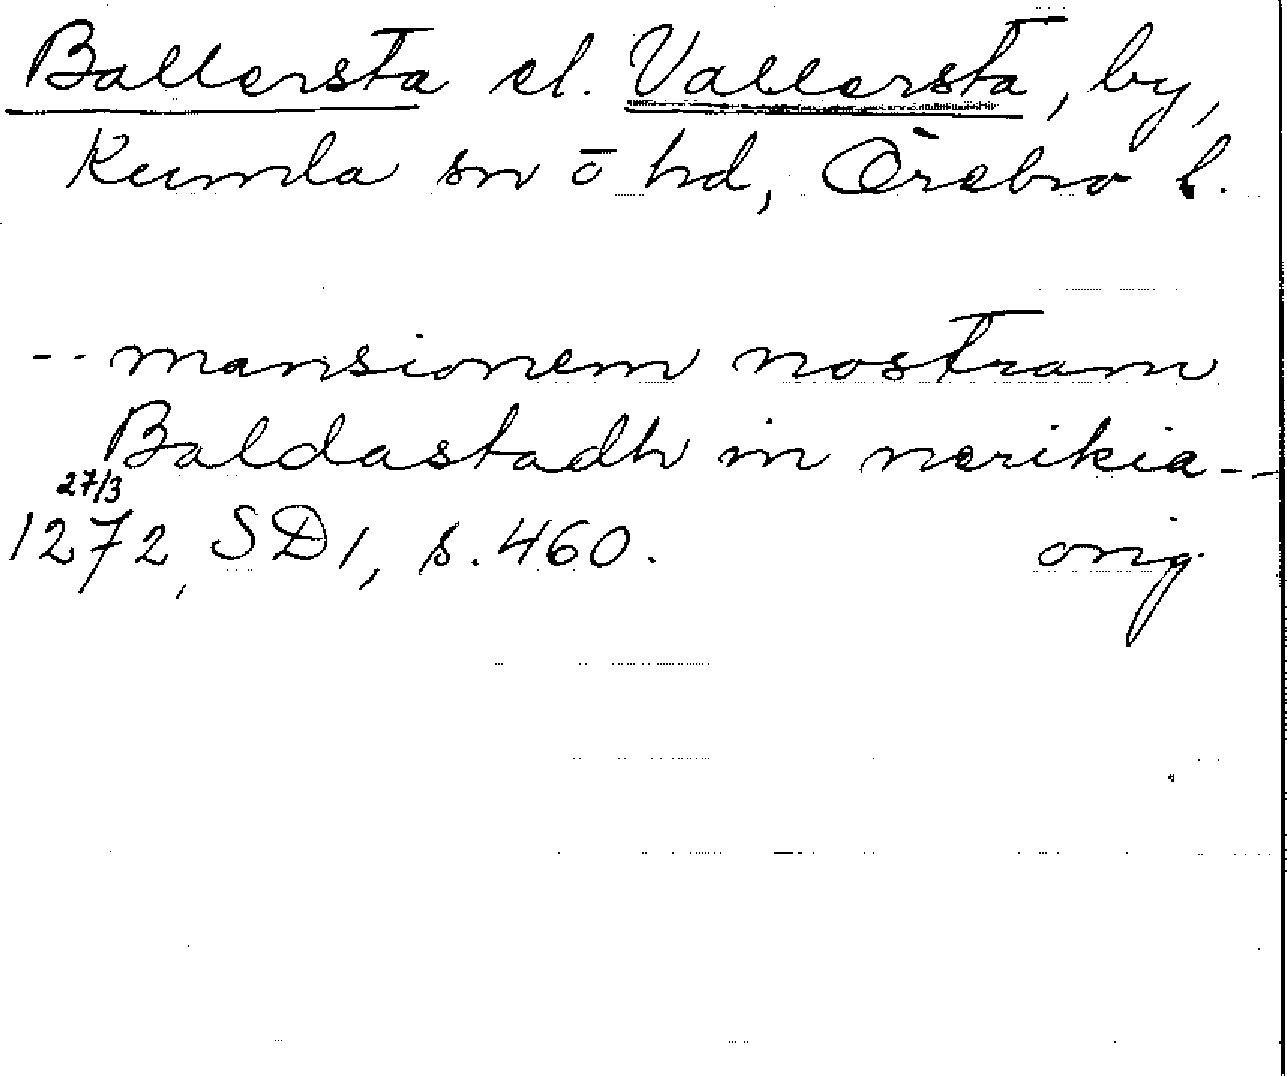 Ballersta el. Vallersta, by,
Kumla sn ō hd, Örebro l.
-- mansionem nostram
Baldastadh in nerikia --
27/3
1272, SD1, s. 460. orig